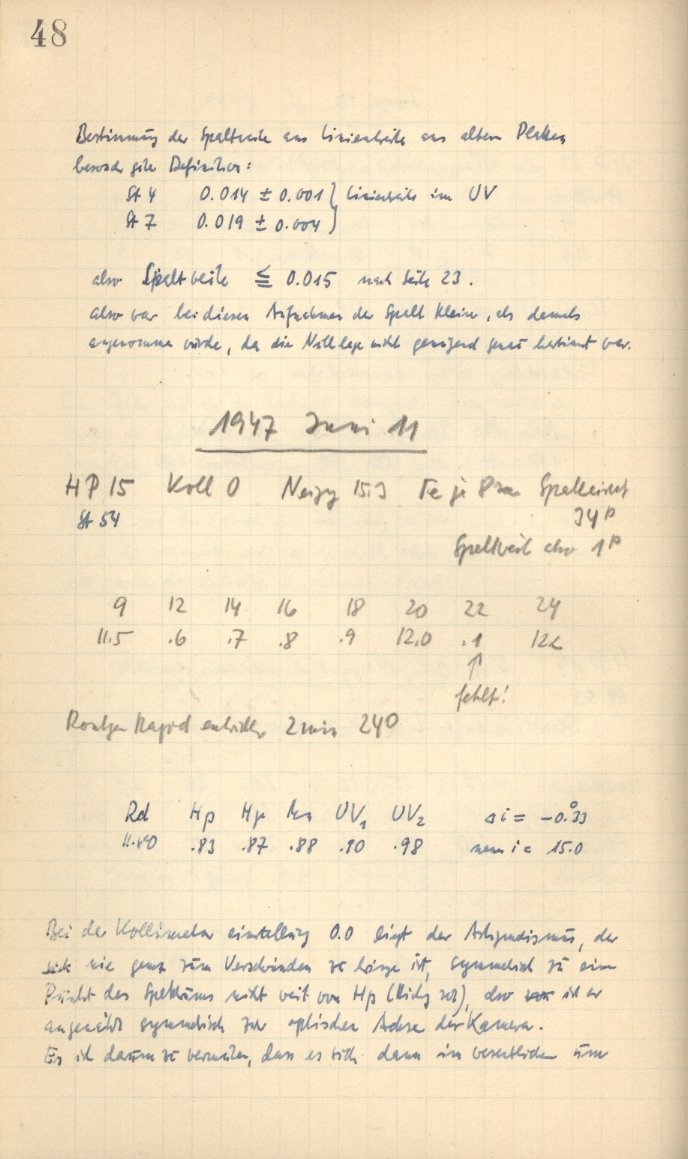 48
Bestimmung der Spaltweite aus Linienbreite aus alten Platten
besonders gute Definition:
St 4 0.014 ± 0.001 } Linienbreite im UV
St 7 0.019 ± 0.004 }
also Spaltweite ≦ 0.015 nach Seite 23.
also war bei diesen Aufnahmen der Spalt kleiner, als damals
angenommen wurde, da die Nulllage nicht genügend genau bestimmt war.
1947 Juni 11
HP 15 Koll 0 Neigg 15.3 Fe je 8
St 54 34 p
Spaltweite also 1 p
9 12 14 16 18 20 22 24
11.5 .6 .7 .8 .9 12.0 .1 12.2
↑
fehlt!
Rontgen Rapid entwickler 2 min 24°
Rd Hβ Hγ UV1 UV2 Δi = -0.°33
.83 .87 .88 .98 i = 15.0
Bei der Kollimator einstellung 0.0 liegt der Astigmatismus, der
nie ganz zum Verschwinden zu bringen ist, symmetrisch zu einem
Punkt des Spektrums nicht weit von Hβ also ist er
angenähert symmetrisch zur optischen Achse der Kamera.
Es ist darum zu vermuten, dass es sich dann im wesentlichen um